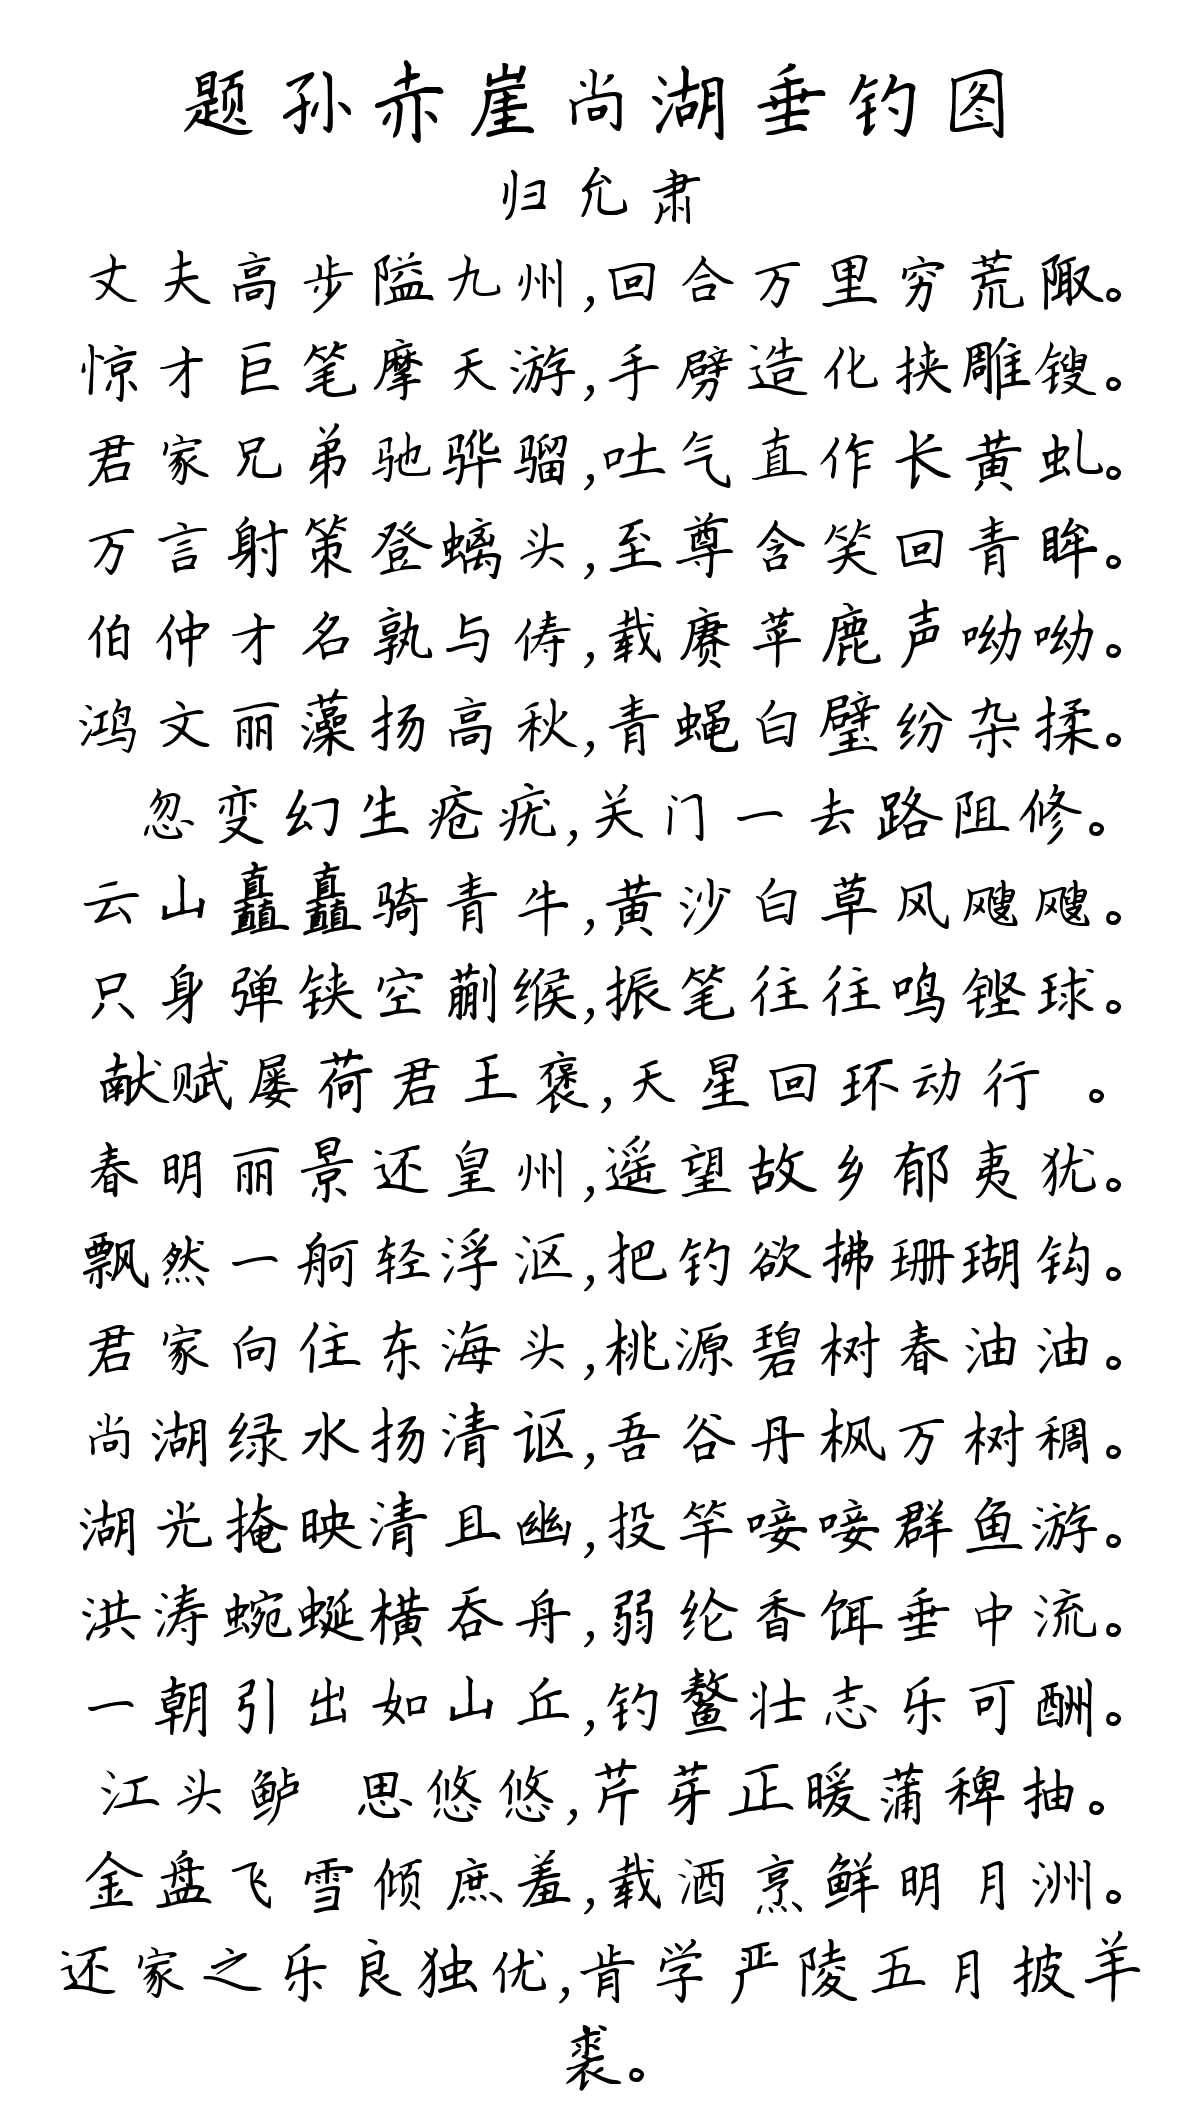 题孙赤崖尚湖垂钓图
归允肃
丈夫高步隘九州,回合万里穷荒陬。
惊才巨笔摩天游,手劈造化挟雕锼。
君家兄弟驰骅骝,吐气直作长黄虬。
万言射策登螭头,至尊含笑回青眸。
伯仲才名孰与俦,载赓苹鹿声呦呦。
鸿文丽藻扬高秋,青蝇白璧纷杂揉。
忽变幻生疮疣,关门一去路阻修。
云山矗矗骑青牛,黄沙白草风飕飕。
只身弹铗空蒯缑,振笔往往鸣铿球。
献赋屡荷君王褒,天星回环动行 。
春明丽景还皇州,遥望故乡郁夷犹。
飘然一舸轻浮沤,把钓欲拂珊瑚钩。
君家向住东海头,桃源碧树春油油。
尚湖绿水扬清讴,吾谷丹枫万树稠。
湖光掩映清且幽,投竿唼唼群鱼游。
洪涛蜿蜒横吞舟,弱纶香饵垂中流。
一朝引出如山丘,钓鳌壮志乐可酬。
江头鲈 思悠悠,芹芽正暖蒲稗抽。
金盘飞雪倾庶羞,载酒烹鲜明月洲。
还家之乐良独优,肯学严陵五月披羊
裘。